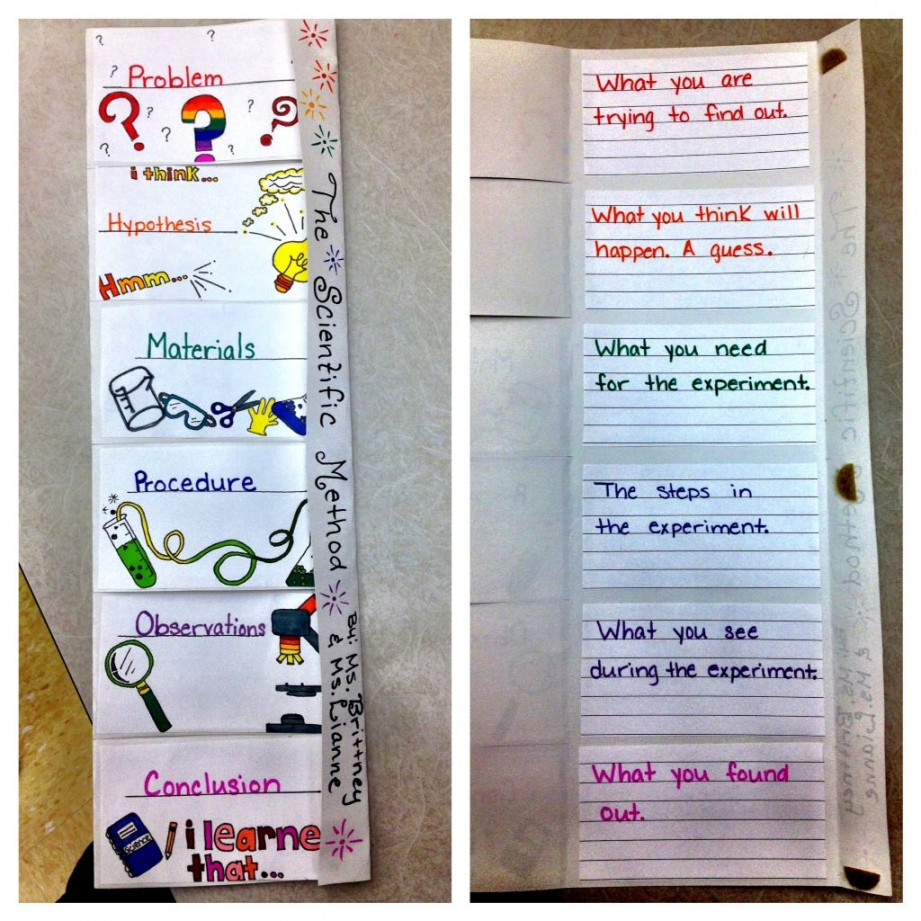 Problem
i think...
Hypothesis
Hmm...
Materials
Procedure
Observations
Conclusion
Science
i learne
that...
The Scientific Method
By: Ms. Brittney
& Ms. Lianne
What you are
trying to find out.
What you think will
happen. A guess.
What you need
for the experiment.
The steps in
the experiment.
What you see
during the experiment.
What you found
out.